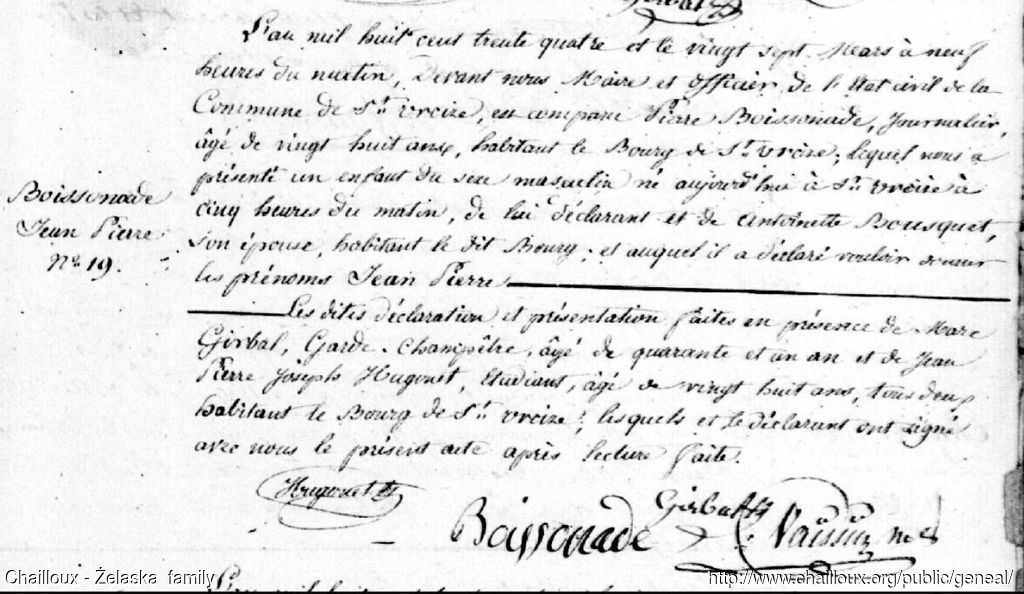 Girbal
L'an mil huit cent trente quatre et le vingt sept Mars à neuf
heures du matin, Devant nous Maire et Officier, de l'Etat civil de la
Commune de St. Urcize, est comparu Pierre Boissonade, Journalier,
âgé de vingt huit ans, habitant le Bourg de St. Urcize; lequel nous a
présenté un enfant du sexe masculin né aujourd'hui à Ste. Urcize à
cinq heures du matin, de lui déclarant et de Antoinette Bousquet,
son épouse, habitant le dit Bourg; et auquel il a déclaré vouloir donner
les prénoms Jean Pierre
Boissonade
Jean Pierre
No. 19.
Les dites déclaration et présentation faites en présence de Marc
Girbal, Garde-Champêtre, âgé de quarante et un an et de Jean
Pierre Joseph Hugonet, Etudiant, âgé de vingt huit ans, tous deux
habitant le Bourg de Ste. Urcize; lesquels et le déclarant ont signé
avec nous le présent acte après lecture faite.
Hugonet
Boissonade
Girbal
Chailloux - Želaska family
http://www.chailloux.org/public/geneal/
L'an mil